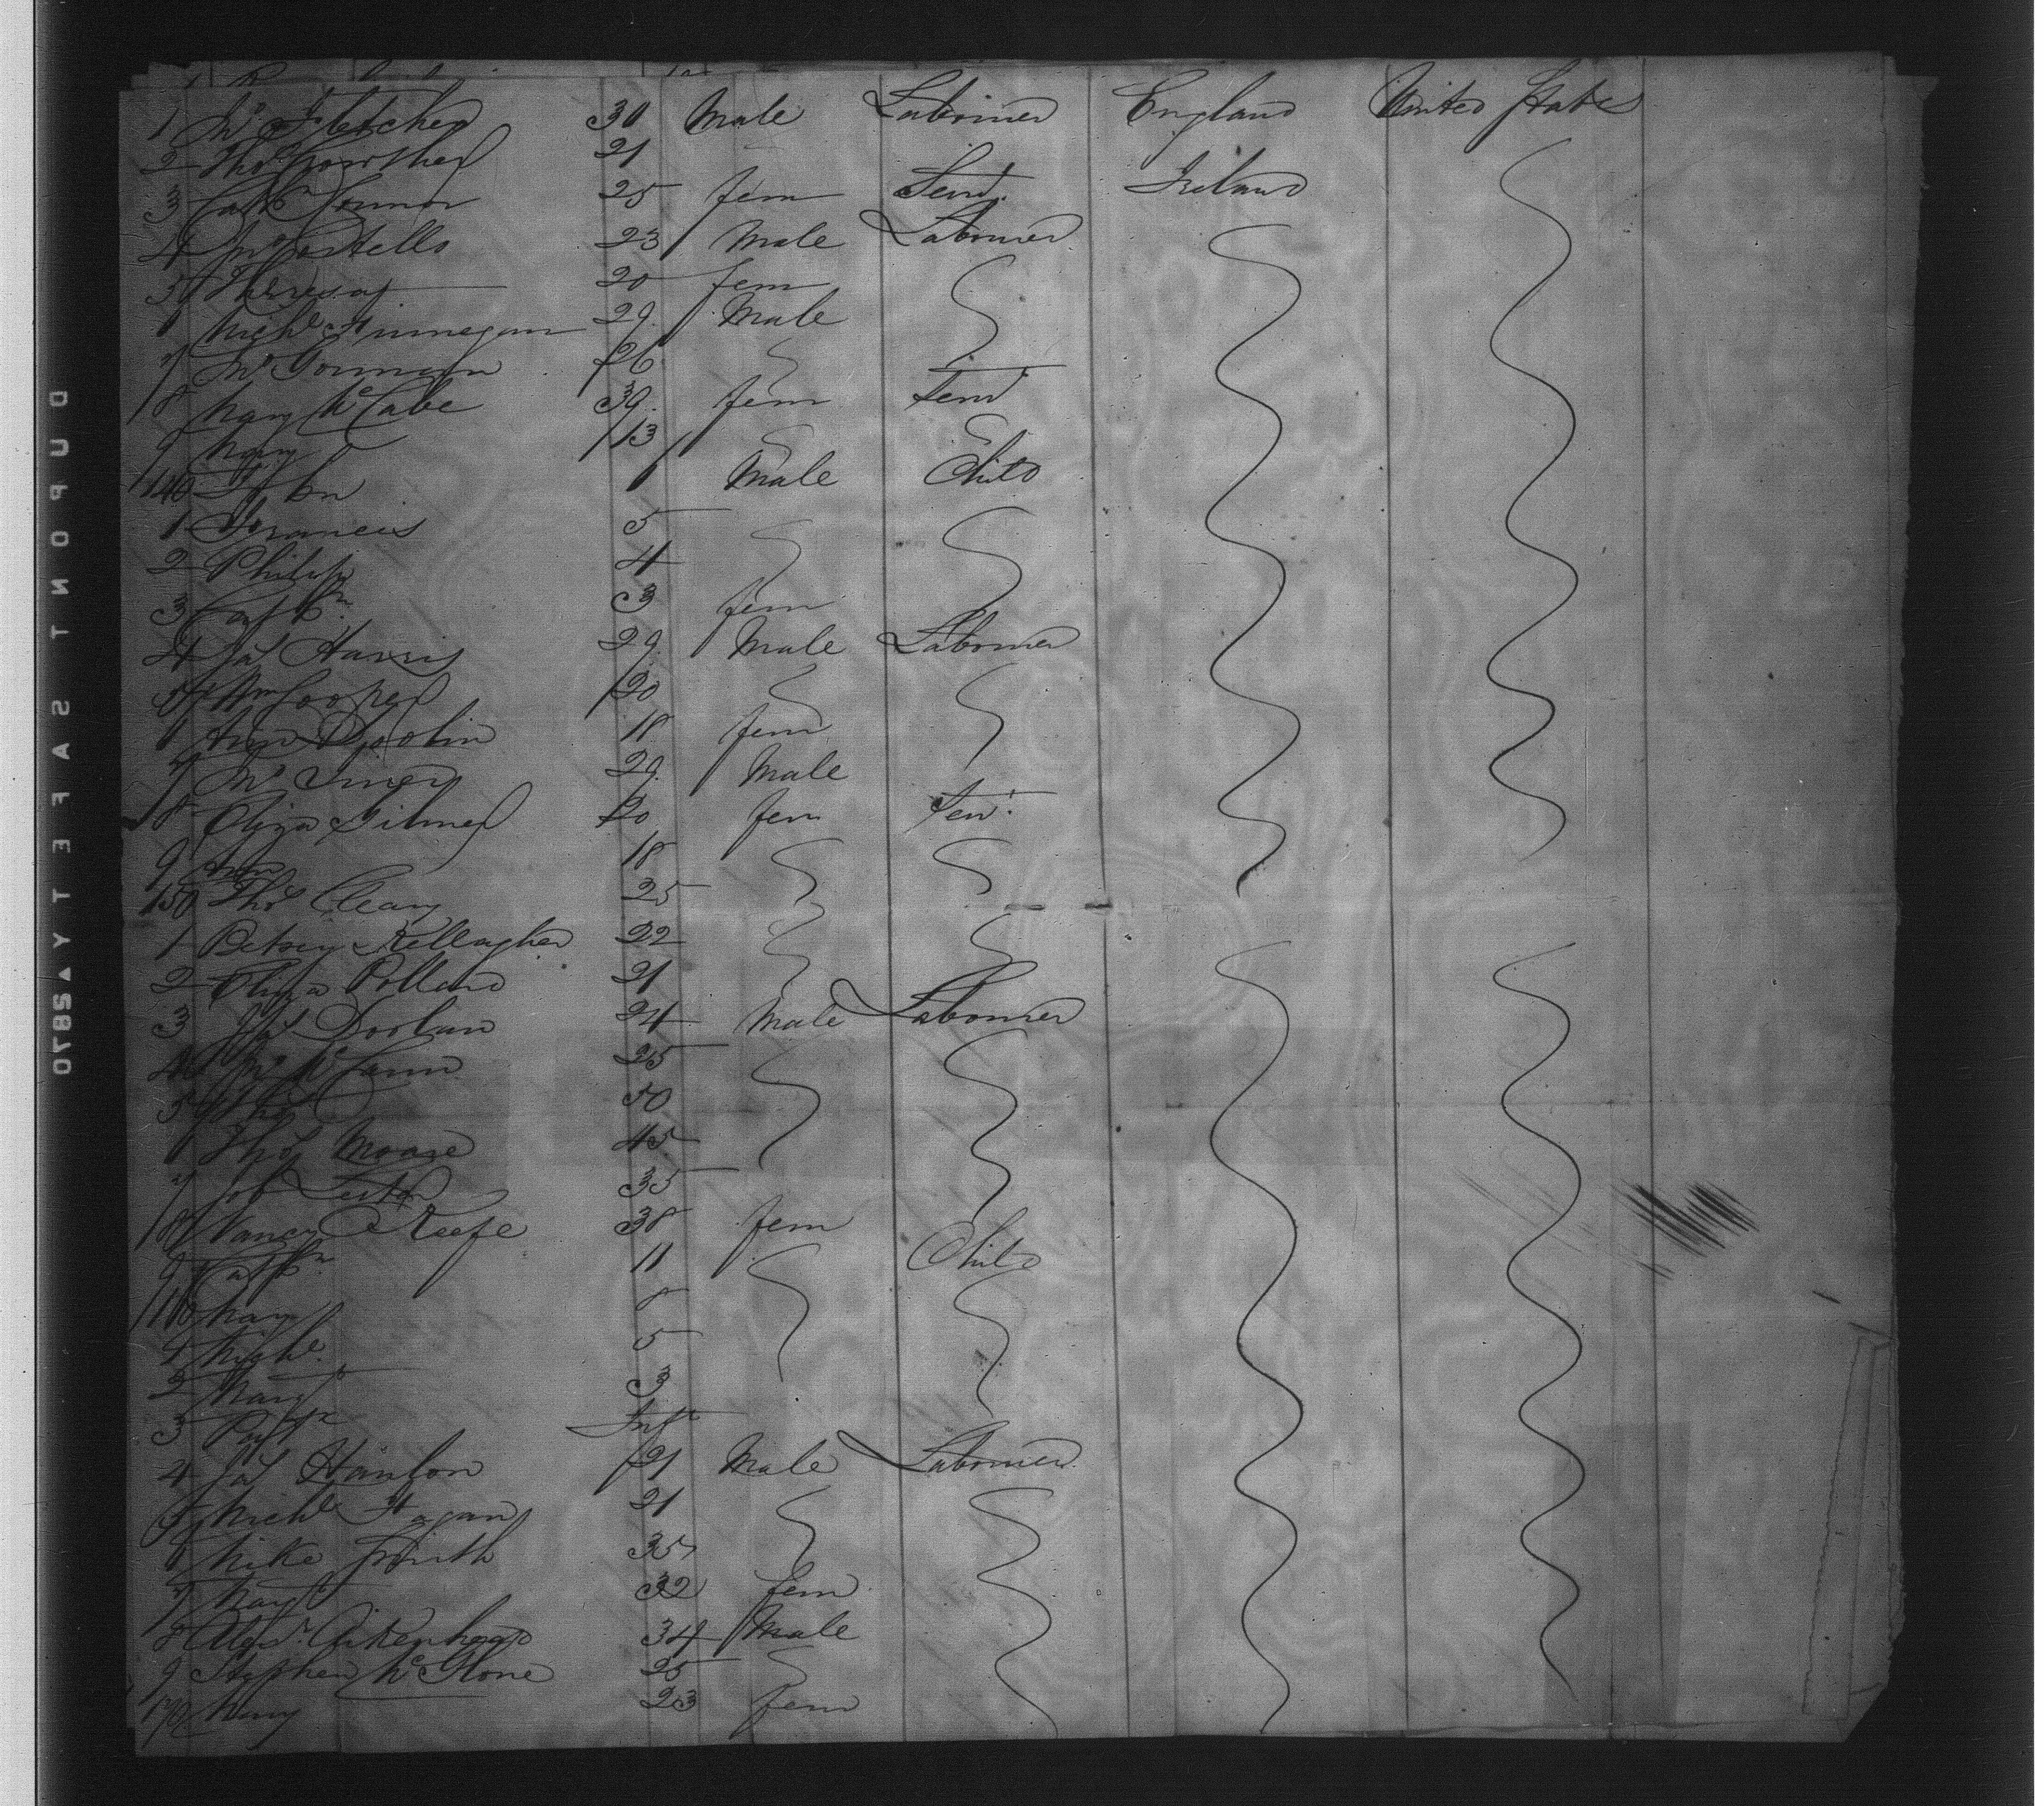 1 Jno Fletcher 30 Male Labourer England United States
2 Thos Crowther 21
3 Cathn Connor 25 fem Servt. Ireland
4 Jno Costello 23 Male Labourer
5 Theresa 20 fem
6 Michl Finnegan 29 Male
7 Jno Gorman 26
8 Mary McCabe 39 fem Servt
9 Mary 13
140 John 6 Male Child
1 Francis 5
2 Philip 4
3 Cathn 3 fem
4 Jas Harris 29 Male Labourer
5 Wm Cooper 20
6 Ann Doolin 18 fem
7 Jno 29 Male
8 Eliza Gilmer 20 fem Servt
9 Ann 18
150 Thos Cleary 25
1 Betsey Kellagher 22
2 Eliza Pollard 21
3 Jas Doolan 24 Male Labourer
4 Jno McCann 25
5 Thos 50
6 Thos Moore 45
7 Job 35
8 Nancy O Keefe 38 fem
9 Cathn 11 Child
160 Mary 8
1 Michl. 5
2 Margt 3
3 Inft
4 Jas Hanlon 21 Male Labourer
5 Michl Hagan 21
6 Mike Smith 35
7 Margt 32 fem
8 Alexr. Aikenhead 34 Male
9 Stephen McGlone 25
170 Mary 23 fem
DUPONT SAFETY 2870